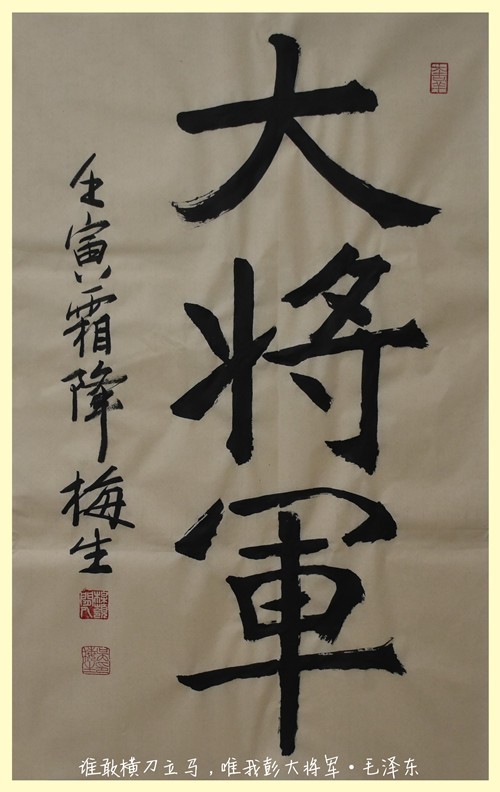 大将軍
壬寅霜降 梅生
谁敢横刀立马，唯我彭大将军·毛泽东